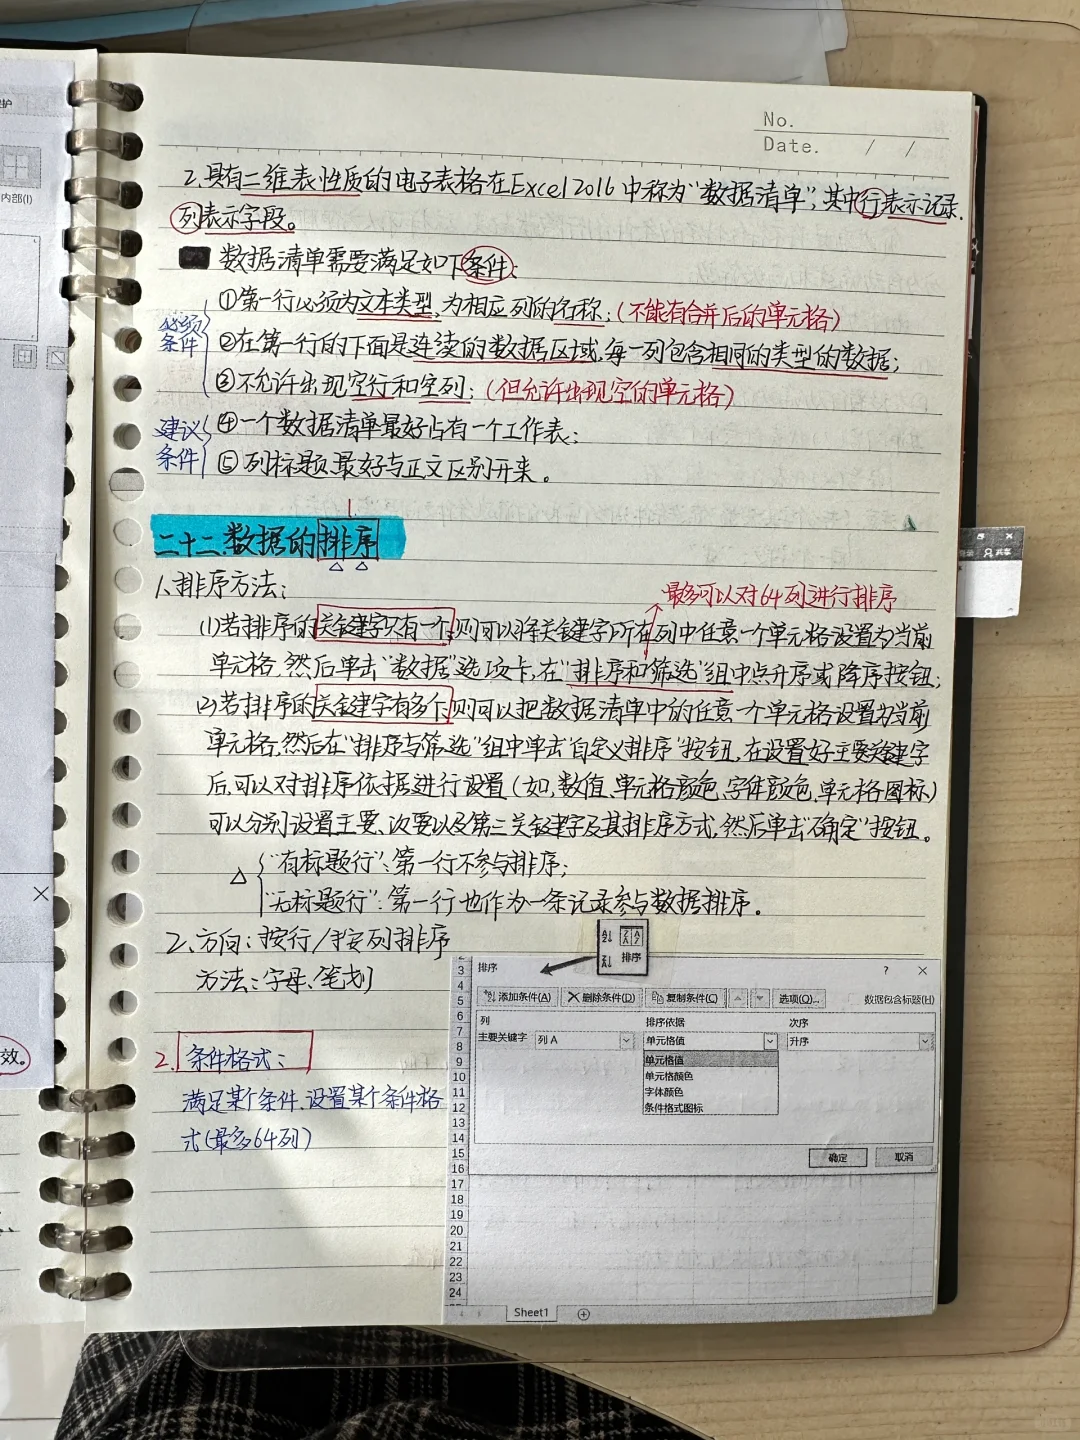 No.
Date. / /
2.具有二维表性质的电子表格在Excel2016中称为“数据清单”,其中行表示记录.
列表示字段。
数据清单需要满足如下条件:
①第一行必须为文本类型,为相应列的名称;(不能有合并后的单元格)
必须
条件
②在第一行的下面是连续的数据区域,每一列包含相同的类型的数据;
③不允许出现空行和空列;(但允许出现空的单元格)
建议
条件
④一个数据清单最好占有一个工作表;
⑤列标题最好与正文区别开来。
二十二.数据的排序
1.排序方法:
最多可以对64列进行排序
(1)若排序的关键字只有一个,则可以将关键字所在列中任意一个单元格设置为当前
单元格,然后单击“数据”选项卡,在“排序和筛选”组中点升序或降序按钮;
(2)若排序的关键字有多个,则可以把数据清单中的任意一个单元格设置为当前
单元格,然后在“排序与筛选”组中单击“自定义排序”按钮,在设置好主要关键字
后,可以对排序依据进行设置(如,数值、单元格颜色、字体颜色、单元格图标)
可以分别设置主要、次要以及第三关键字及其排序方式,然后单击“确定”按钮。
“有标题行”:第一行不参与排序;
“无标题行”:第一行也作为一条记录参与数据排序。
2.方向:按行/按列排序
方法:字母、笔划
排序
2.条件格式:
满足某个条件、设置某个条件格
式(最多64列)
排序 ? ×
添加条件(A) 删除条件(D) 复制条件(C) 选项(O)... 数据包含标题(H)
列 排序依据 次序
主要关键字 列 A 单元格值 升序
单元格值
单元格颜色
字体颜色
条件格式图标
确定 取消
3
4
5
6
7
8
9
10
11
12
13
14
15
16
17
18
19
20
21
22
23
24
Sheet1
内部(I)
效。
共享